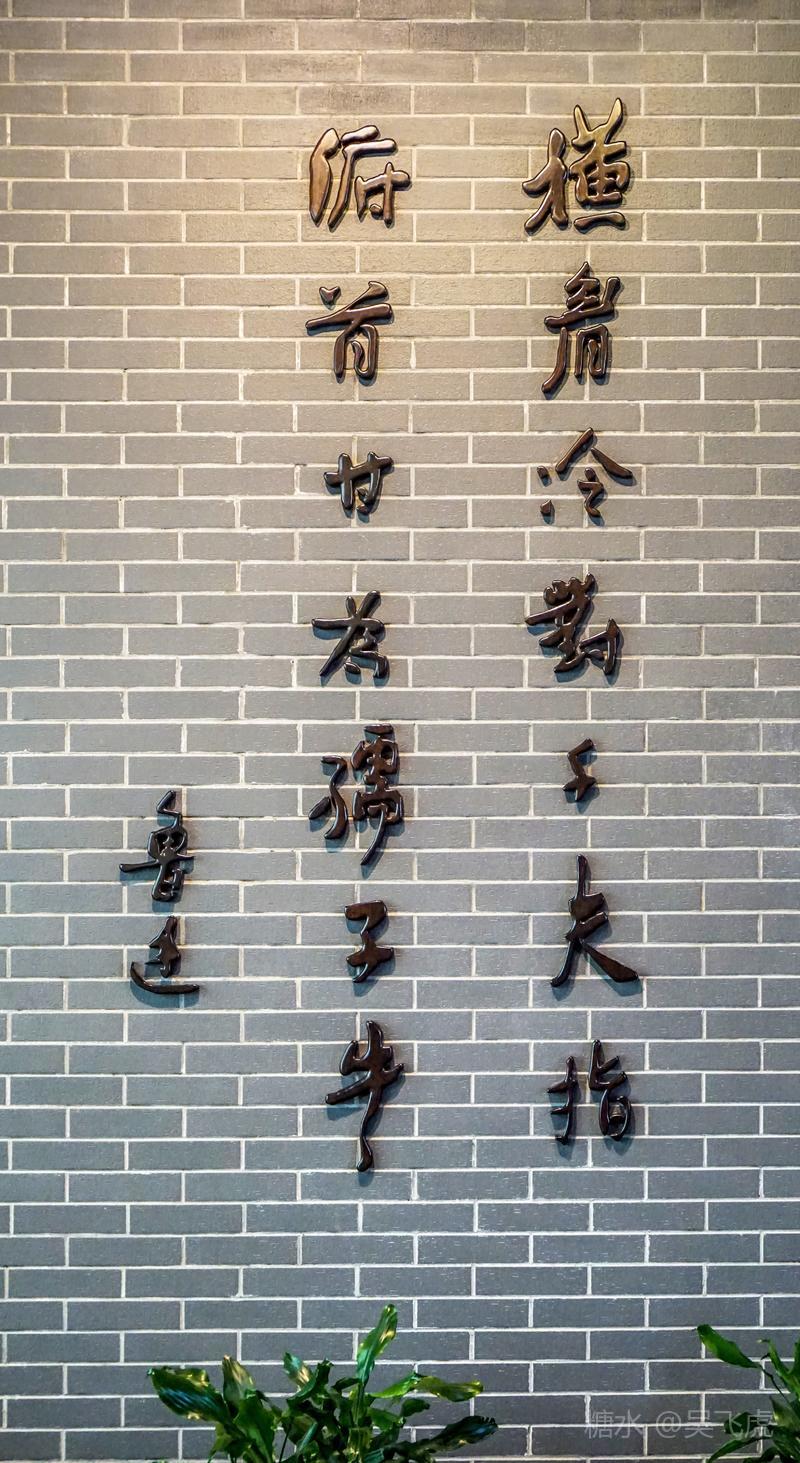 橫眉冷對千夫指
俯首甘為孺子牛
魯迅
糖水 @吴飞虎